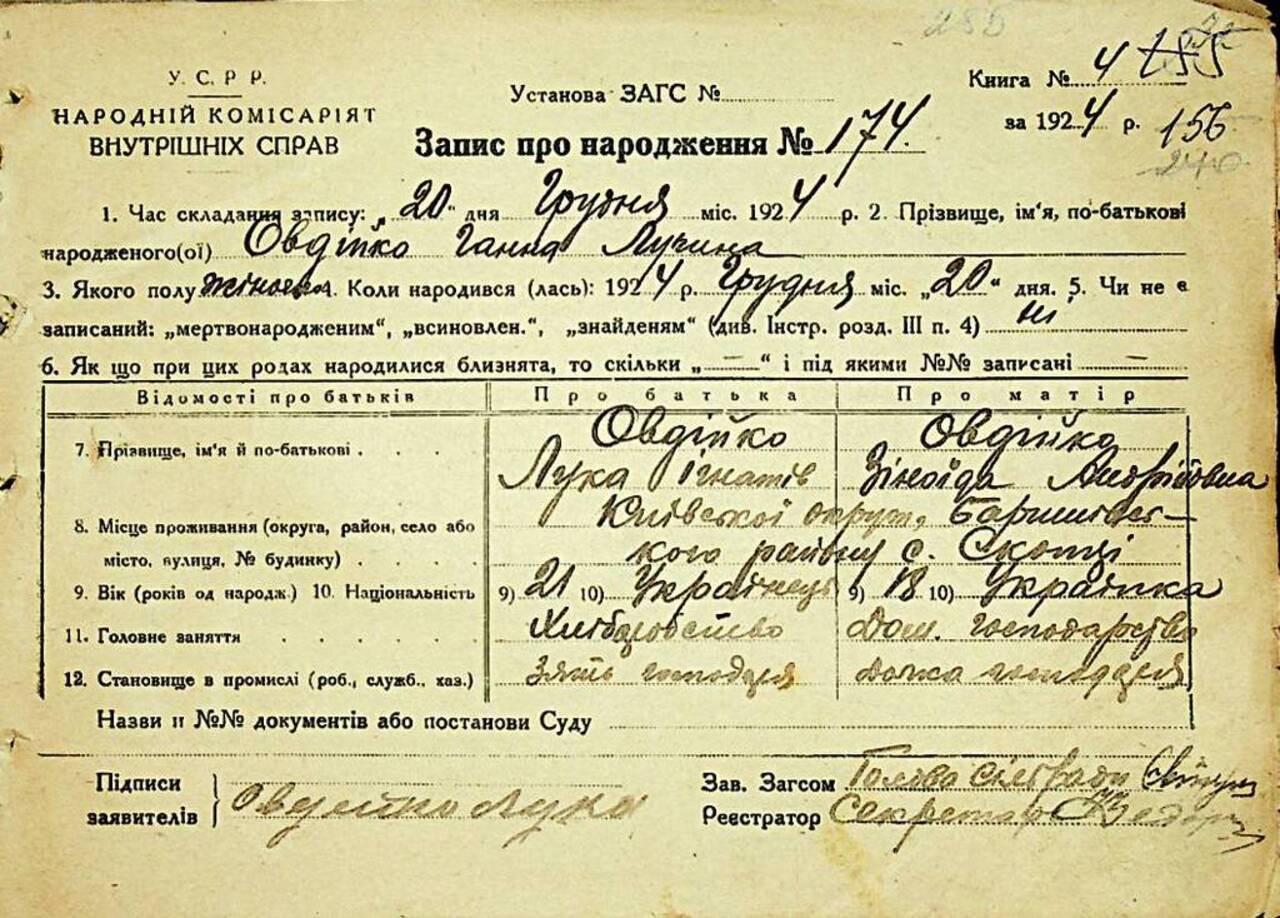 285
У. С. Р Р.
НАРОДНІЙ КОМІСАРІЯТ
ВНУТРІШНІХ СПРАВ
Установа ЗАГС №
Книга № 4 155
за 1924 р. 156
Запис про народження № 174.
1. Час складання запису: „20“ дня Грудня міс. 1924 р. 2. Прізвище, ім'я, по-батькові
народженого(ої) Овдійко Ганна Лучина
3. Якого полу жіночого 4. Коли народився (лась): 1924 р. Грудня міс. „20“ дня. 5. Чи не є
записаний: „мертвонародженим“, „всиновлен.“, „знайденям“ (див. Інстр. розд. III п. 4) ні
6. Як що при цих родах народилися близнята, то скільки „—“ і під якими №№ записані —
Відомості про батьків Про батька Про матір
7. Прізвище, ім'я й по-батькові . . . . Овдійко Овдійко
Лука Ігнатів Зіноїда Андріївна
8. Місце проживання (округа, район, село або Київської округ, Баришівсь-
місто, вулиця, № будинку) . . . . кого району с. Скопці
9. Вік (років од народж.) 10. Національність 9) 21 10) Українець 9) 18 10) Українка
11. Головне заняття . . . . . Хліборобство Дом. господарство
12. Становище в промислі (роб., служб., хаз.) Зять господаря дочка господаря
Назви и №№ документів або постанови Суду
Підписи
заявителів Овдейко Лука
Зав. Загсом Голова сільради
Реєстратор Секретар